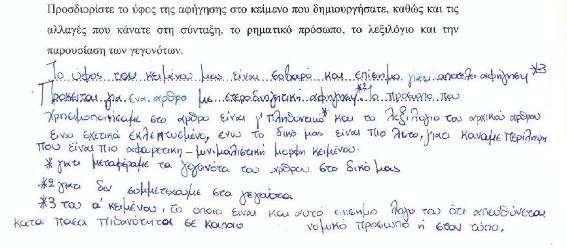 Προσδιορίστε το ύφος της αφήγησης στο κείμενο που δημιουργήσατε, καθώς και τις
αλλαγές που κάνατε στη σύνταξη, το ρηματικό πρόσωπο, το λεξιλόγιο και την
παρουσίαση των γεγονότων.
Το ύφος του κειμένου μας είναι σοβαρό και επίσημο γιατί αποτελεί αφήγηση *3
Πρόκειται για ένα άρθρο με ετεροδιηγητική αφήγηση.*2 Το πρόσωπο που
χρησιμοποιήσαμε στο άρθρο είναι γ' πληθυντικό* και το λεξιλόγιο του αρχικού άρθρου
είναι σχετικά εκλεπτυσμένο, ενώ το δικό μας είναι πιο λιτό, γιατί κάναμε περίληψη
που είναι πιο αφαιρετική - μινιμαλιστική μορφή κειμένου.
* γιατί μεταφέραμε τα γεγονότα του άρθρου στο δικό μας
*2 γιατί δεν συμμετέχουμε στα γεγονότα
*3 του α' κειμένου, το οποίο είναι και αυτό επίσημο λόγω του ότι απευθύνεται
κατά πάσα πιθανότητα σε κάποιο νομικό πρόσωπο ή στον τύπο.